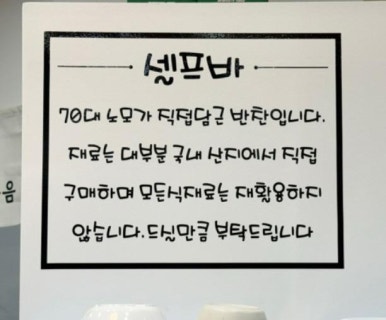 셀프바
70대 노모가 직접담근 반찬입니다.
재료는 대부분 국내 산지에서 직접
구매하며 모든식재료는 재활용하지
않습니다.드실만큼 부탁드립니다
음